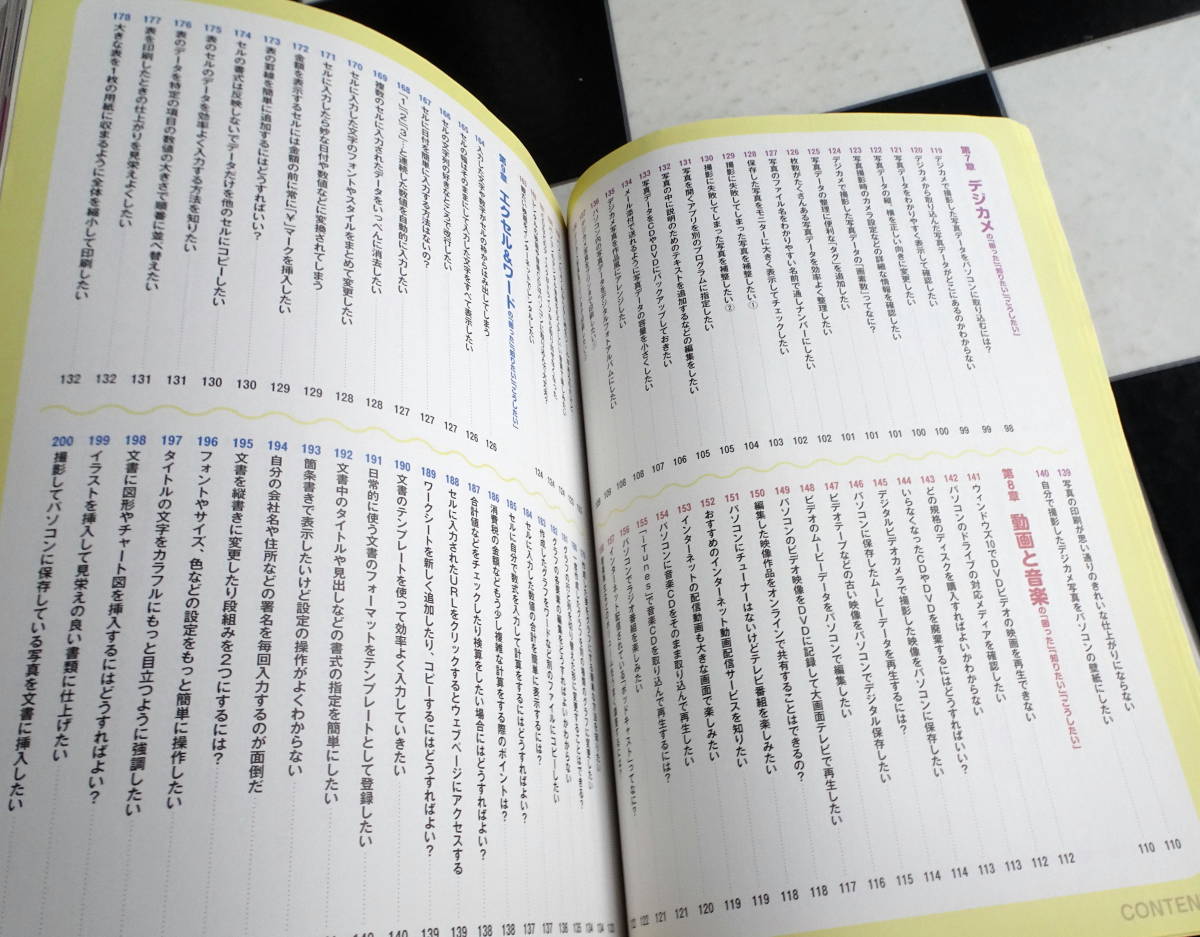 第7章 デジカメの「困った」「知りたい」「こうしたい」
119 デジカメで撮影した写真データをパソコンに取り込むには? 98
120 デジカメから取り込んだ写真データがどこにあるのかわからない 99
121 写真データをわかりやすく表示して確認したい 99
122 写真データの縦、横を正しい向きに変更したい 100
123 写真撮影時のカメラ設定などの詳細な情報を確認したい 100
124 デジカメで撮影した写真データの「画素数」ってなに? 101
125 写真データの整理に便利な「タグ」を追加したい 101
126 枚数がたくさんある写真データを効率よく整理したい 101
127 写真のファイル名をわかりやすい名前で通しナンバーにしたい 102
128 保存した写真をモニターに大きく表示してチェックしたい 102
129 撮影に失敗してしまった写真を補整したい① 103
130 撮影に失敗してしまった写真を補整したい② 104
131 写真を開くアプリを別のプログラムに指定したい 105
132 写真の中に説明のためのテキストを追加するなどの編集をしたい 105
133 写真データをCDやDVDにバックアップしておきたい 106
134 メール添付で送れるように写真データの容量を小さくしたい 107
135 デジカメ写真を作品風にアレンジしたい 108
136 パソコン内の写真データをデジタルフォトアルバムにしたい
139 写真の印刷が思い通りのきれいな仕上がりにならない 110
140 自分で撮影したデジカメ写真をパソコンの壁紙にしたい 110
第8章 動画と音楽の「困った」「知りたい」「こうしたい」
141 ウィンドウズ10でDVDビデオの映画を再生できない 112
142 パソコンのドライブの対応メディアを確認したい 112
143 どの規格のディスクを購入すればよいかわからない 113
144 いらなくなったCDやDVDを廃棄するにはどうすればいい? 113
145 デジタルビデオカメラで撮影した映像をパソコンに保存したい 114
146 パソコンに保存したムービーデータを再生するには? 114
147 ビデオテープなどの古い映像をパソコンでデジタル保存したい 115
148 ビデオのムービーデータをパソコンで編集したい 116
149 パソコンのビデオ映像をDVDに記録して大画面テレビで再生したい 117
150 編集した映像作品をオンラインで共有することはできるの? 118
151 パソコンにチューナーはないけどテレビ番組を楽しみたい 118
152 おすすめのインターネット動画配信サービスを知りたい 119
153 インターネットの配信動画も大きな画面で楽しみたい 119
154 パソコンに音楽CDをそのまま取り込んで再生したい 120
155 「iTunes」で音楽CDを取り込んで再生するには? 121
156 パソコンでラジオ番組を楽しみたい 121
157 インターネット配信されている「ポッドキャスト」ってなに? 122
第9章 エクセル&ワードの「困った」「知りたい」「こうしたい」
164 入力した文字や数字がセルの枠からはみ出してしまう 126
165 セルの幅はそのままにして入力した文字をすべて表示したい 126
166 セルの文字列の好きなところで改行したい 127
167 セルに日付を簡単に入力する方法はないの? 127
168 「1」「2」「3」…と連続した数値を自動的に入力したい 127
169 複数のセルに入力されたデータをいっぺんに消去したい 128
170 セルに入力した文字のフォントやスタイルをまとめて変更したい 128
171 セルに入力したら妙な日付や数値などに変換されてしまう 129
172 金額を表示するセルには金額の前に常に「￥」マークを挿入したい 129
173 表の罫線を簡単に追加するにはどうすればいい? 130
174 セルの書式は反映しないでデータだけを他のセルにコピーしたい 130
175 表のセルのデータを効率よく入力する方法を知りたい 131
176 表のデータを特定の項目の数値の大きさで順番に並べ替えたい 131
177 表を印刷したときの仕上がりを見栄えよくしたい 132
178 大きな表を1枚の用紙に収まるように全体を縮小して印刷したい 132
183 作成したグラフをワードなど別のファイルにコピーしたい
184 セルに入力した数値の合計を簡単に表示するには?
185 セルに自分で数式を入力して計算をするにはどうすればよい?
186 消費税の金額などもう少し複雑な計算をする際のポイントは?
187 合計値などをチェックしたり検算をしたい場合にはどうすればよい?
188 セルに入力されたURLをクリックするとウェブページにアクセスする
189 ワークシートを新しく追加したり、コピーするにはどうすればよい?
190 文書のテンプレートを使って効率よく入力していきたい
191 日常的に使う文書のフォーマットをテンプレートとして登録したい
192 文書中のタイトルや見出しなどの書式の指定を簡単にしたい
193 箇条書きで表示したいけど設定の操作がよくわからない
194 自分の会社名や住所などの署名を毎回入力するのが面倒だ
195 文書を縦書きに変更したり段組みを2つにするには?
196 フォントやサイズ、色などの設定をもっと簡単に操作したい
197 タイトルの文字をカラフルにもっと目立つように強調したい
198 文書に図形やチャート図を挿入するにはどうすればよい?
199 イラストを挿入して見栄えの良い書類に仕上げたい
200 撮影してパソコンに保存している写真を文書に挿入したい
CONTEN